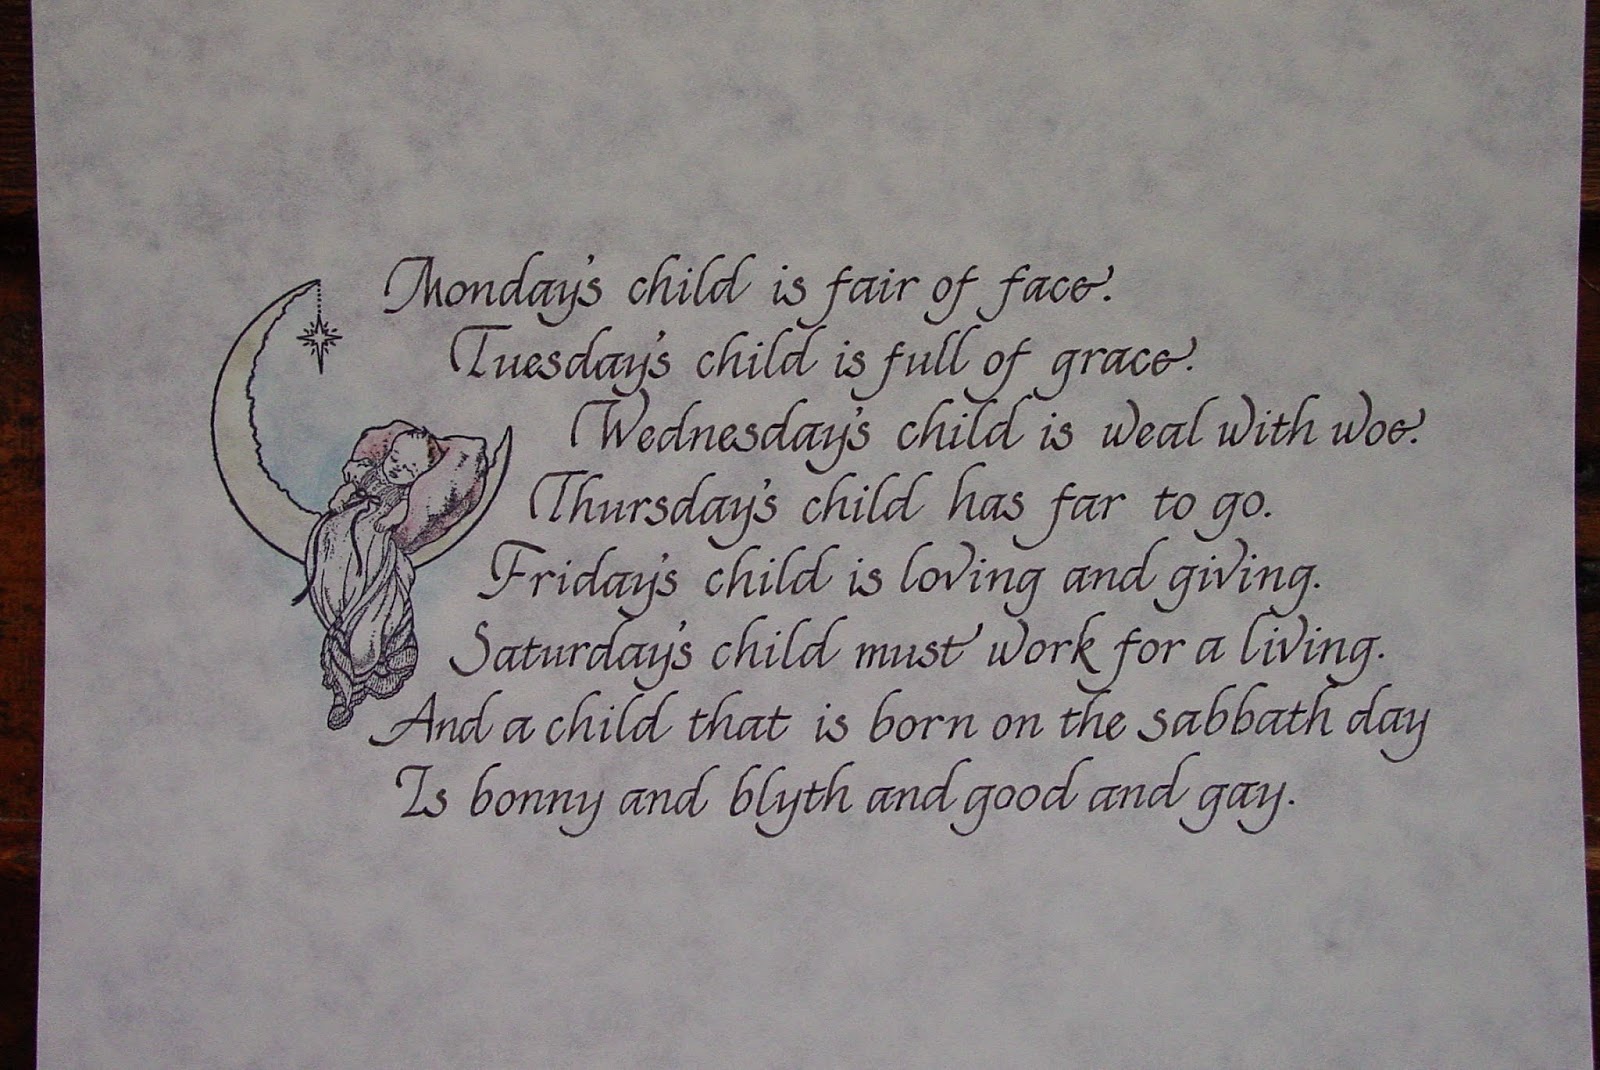 Monday's child is fair of face.
Tuesday's child is full of grace.
Wednesday's child is weal with woe.
Thursday's child has far to go.
Friday's child is loving and giving.
Saturday's child must work for a living.
And a child that is born on the sabbath day
Is bonny and blyth and good and gay.